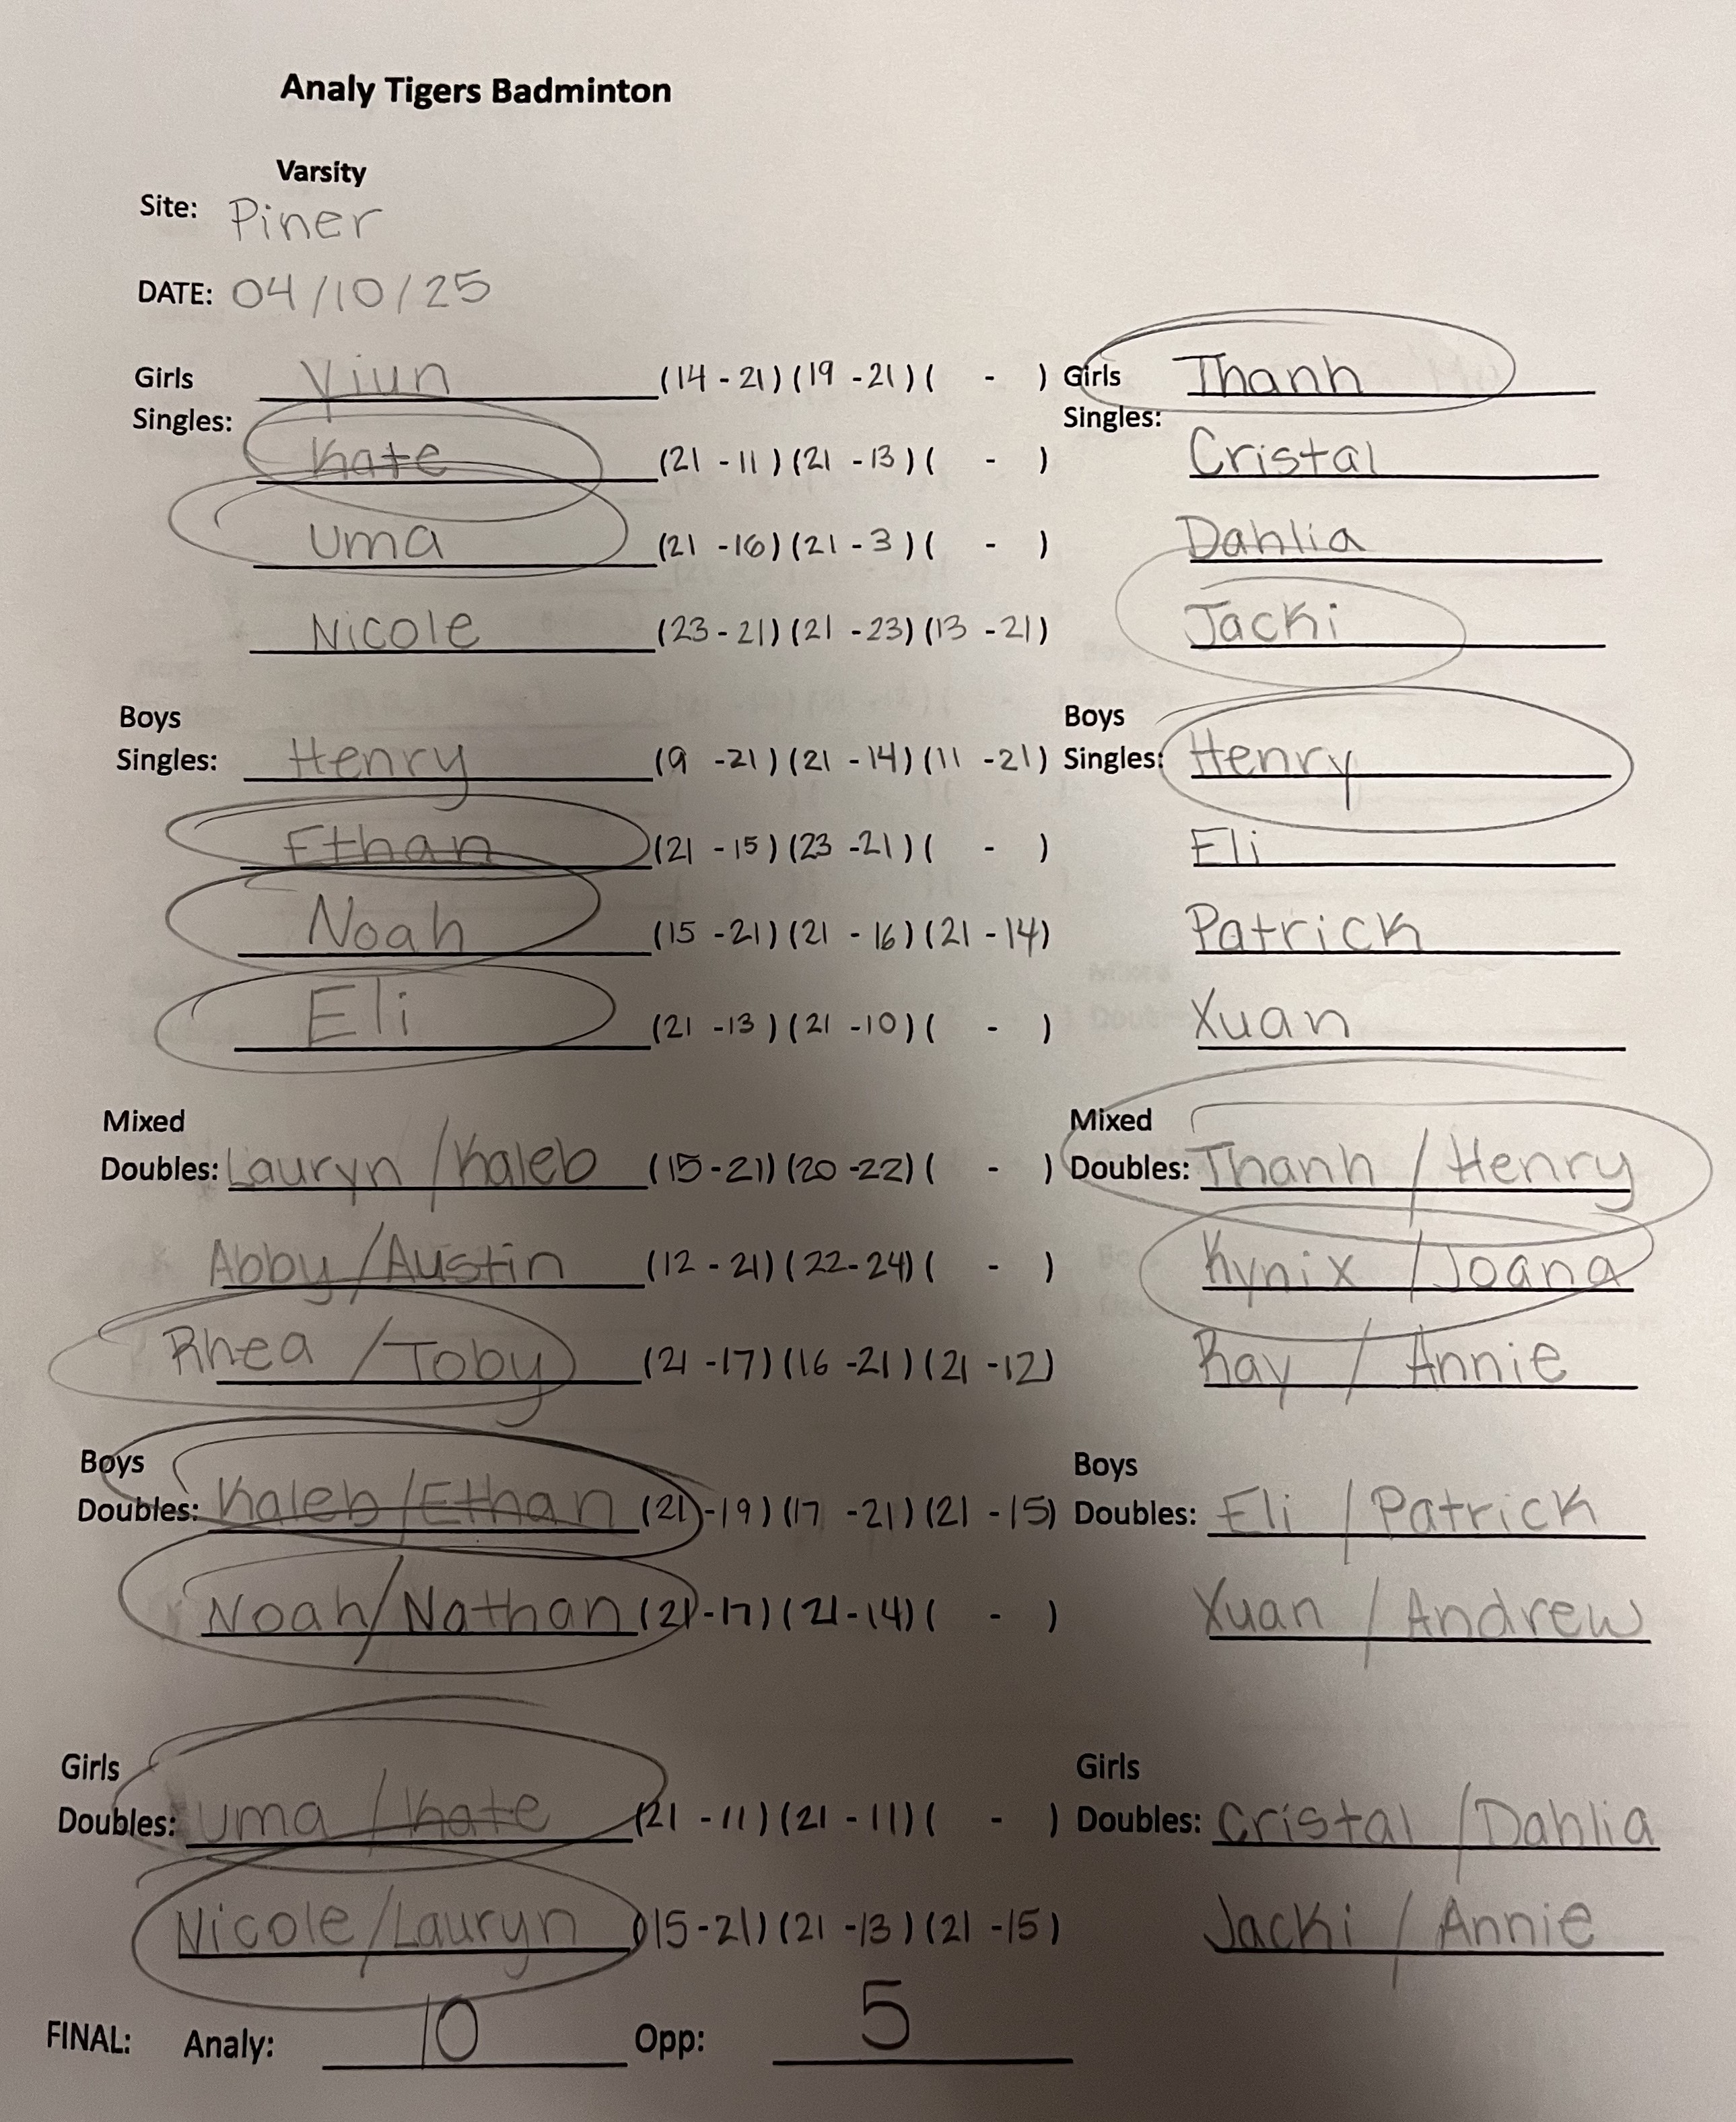 Analy Tigers Badminton
Varsity
Site: Piner
DATE: 04/10/25
Girls Singles: Viun (14 - 21) (19 - 21) ( - ) Girls Singles: Thanh
Kate (21 - 11) (21 - 13) ( - ) Cristal
Uma (21 - 16) (21 - 3) ( - ) Dahlia
Nicole (23 - 21) (21 - 23) (13 - 21) Jacki
Boys Singles: Henry (9 - 21) (21 - 14) (11 - 21) Boys Singles: Henry
Ethan (21 - 15) (23 - 21) ( - ) Eli
Noah (15 - 21) (21 - 16) (21 - 14) Patrick
Eli (21 - 13) (21 - 10) ( - ) Xuan
Mixed Doubles: Lauryn / Kaleb (15 - 21) (20 - 22) ( - ) Mixed Doubles: Thanh / Henry
Abby / Austin (12 - 21) (22 - 24) ( - ) Kynix / Joana
Rhea / Toby (21 - 17) (16 - 21) (21 - 12) Ray / Annie
Boys Doubles: Kaleb / Ethan (21 - 19) (17 - 21) (21 - 15) Boys Doubles: Eli / Patrick
Noah / Nathan (21 - 17) (21 - 14) ( - ) Xuan / Andrew
Girls Doubles: Uma / Kate (21 - 11) (21 - 11) ( - ) Girls Doubles: Cristal / Dahlia
Nicole / Lauryn (15 - 21) (21 - 13) (21 - 15) Jacki / Annie
FINAL: Analy: 10 Opp: 5